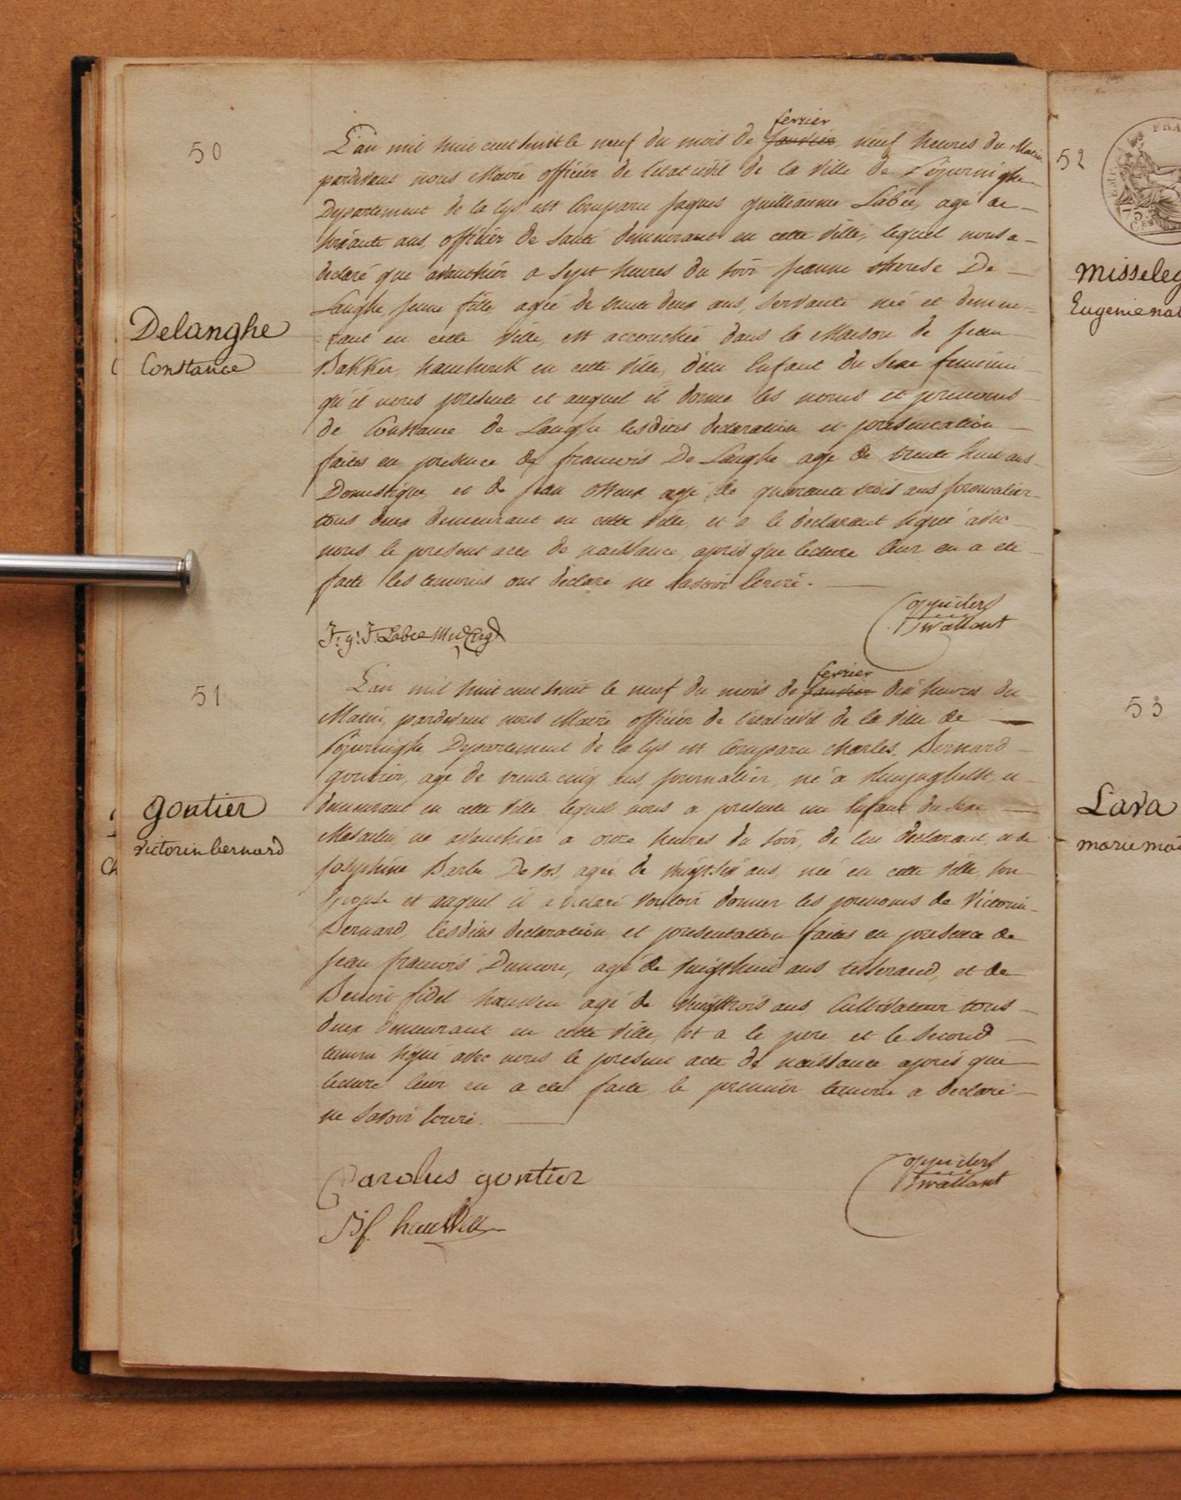 50
Delanghe
Constance
fevrier
L'an mil huit cent huit le neuf du mois de janvier neuf heures du Matin
pardevant nous Maire officier de l'etat civil de la ville de Poperinghe
Departement de la Lys est Comparu Jaques Guilleaume Labée, agé de
soixante ans, officier de santé demeurant en cette ville, lequel nous a
declaré que avanthier a sept heures du soir Jeanne therese De
Langhe jeune fille agée de trente deux ans, servante née et demeu-
rant en cette ville, est accouchée dans la Maison de Jean
Bakker, en cette ville, d'un Enfant du sexe feminin
qu'il nous presente et auquel il donne les noms et prenoms
de Constance de Langhe lesdites declaration et presentation
faites en presence de francois De Langhe agé de trente huit ans
Domestique et de Jean agé de quarante trois ans journalier
tous deux demeurant en cette ville, et a le declarant signé avec
nous le present acte de naissance, après que lecture leur en a eté
faite les temoins ont declaré ne savoir Ecrire.
J: g: J. Labée
51
gontier
victorin bernard
fevrier
L'an mil huit cent huit le neuf du mois de janvier dix heures du
Matin, pardevant nous Maire officier de l'etat civil de la ville de
Poperinghe Departement de la Lys est Comparu Charles Bernard
gontier, agé de trente cinq ans journalier, né a et
demeurant en cette ville lequel nous a presenté un Enfant du sexe
Masculin né avanthier a onze heures du soir, de lui declarant, et de
Josephine Barbe De vos agée de vingt six ans, née en cette ville, son
Epouse et auquel il a declaré vouloir donner les prenoms de Victorin
Bernard, lesdites declaration et presentation faites en presence de
Jean francois agé de vingt huit ans tisserand, et de
Benoit fidel agé de vingt trois ans Cultivateur tous
deux demeurant en cette ville, et a le pere et le second
temoin signé avec nous le present acte de naissance après que
lecture leur en a eté faite, le premier temoin a declaré
ne savoir Ecrire.
Carolus gontier
B f.
52
Eugenie
53
Lava